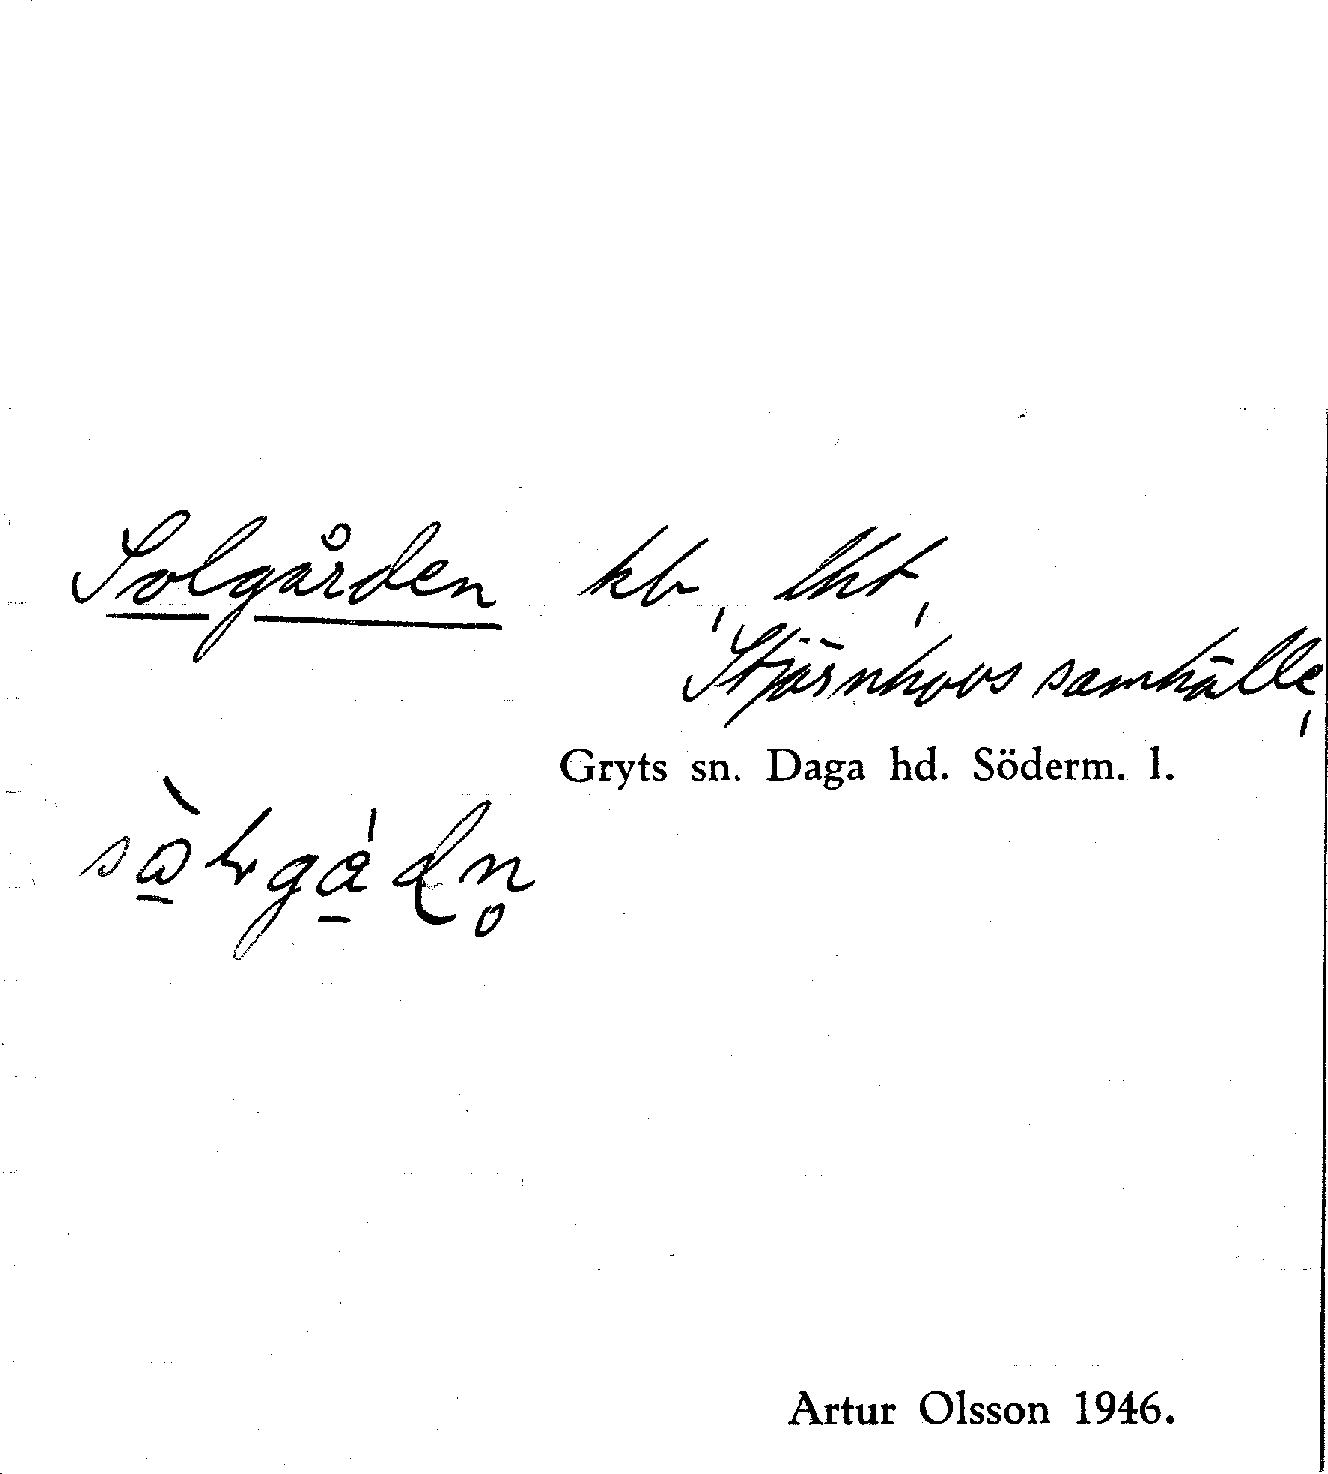 Solgården kb, lht,
Stjärnhovs samhälle,
Gryts sn. Daga hd. Söderm. l.
Artur Olsson 1946.